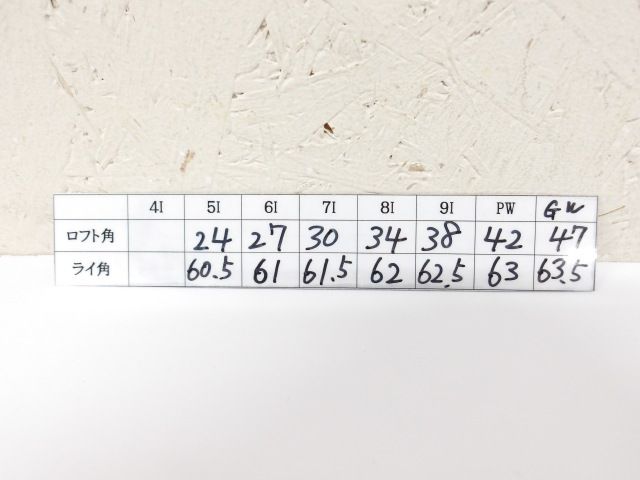 4I 5I 6I 7I 8I 9I PW GW
ロフト角 24 27 30 34 38 42 47
ライ角 60.5 61 61.5 62 62.5 63 63.5